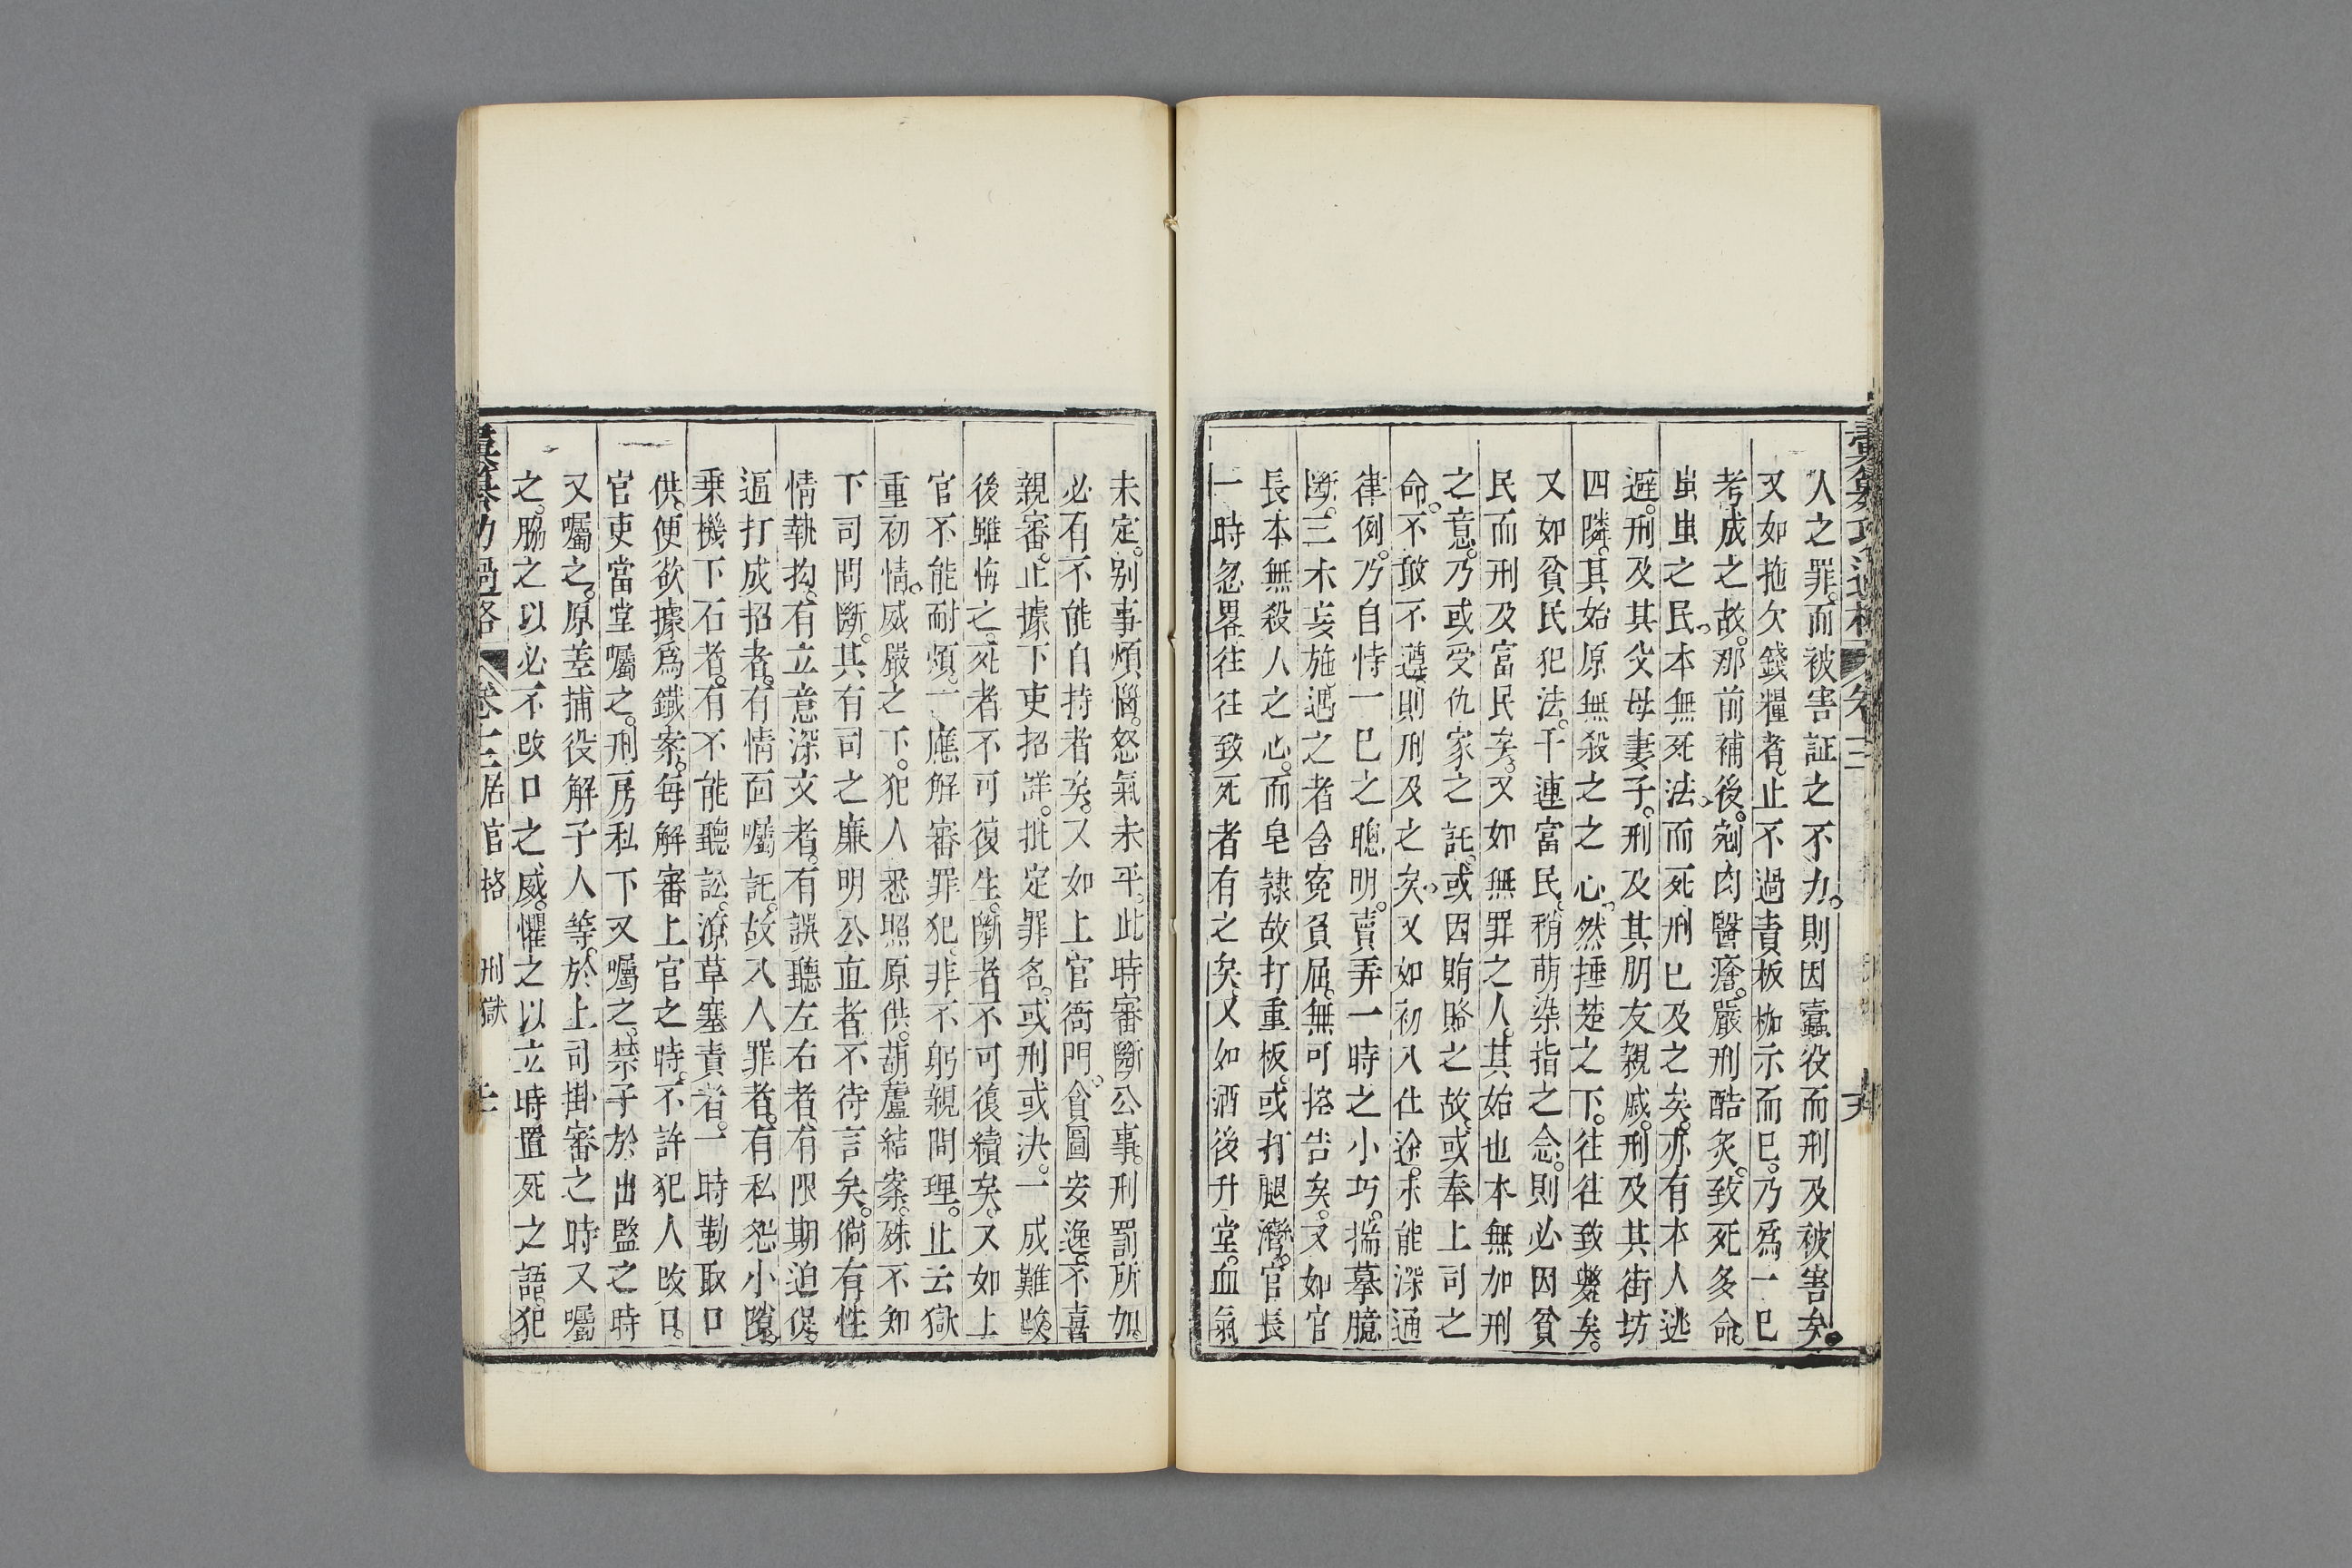 彙纂功過格 卷三
人之罪。而被害証之不力。則因蠹役而刑及被害矣。
又如拖欠錢糧者。止不過責板枷示而巳。乃爲一巳
考成之故。那前補後。剜肉醫瘡。嚴刑酷炙。致死多命。
蚩蚩之民。本無死法。而死刑巳及之矣。亦有本人逃
避。刑及其父母妻子。刑及其朋友親戚。刑及其街坊
四隣。其始原無殺之之心。然捶楚之下。往往致斃矣。
又如貧民犯法。干連富民。稍萌染指之念。則必因貧
民而刑及富民矣。又如無罪之人。其始也本無加刑
之意。乃或受仇家之託。或因賄賂之故。或奉上司之
命。不敢不遵。則刑及之矣。又如初入仕途。未能深通
律例。乃自恃一巳之聰明。賣弄一時之小巧。揣摹臆
斷。三木妄施。遇之者含寃負屈。無可控告矣。又如官
長本無殺人之心。而皂隸故打重板。或打腿灣。官長
一時忽畧。往往致死者有之矣。又如酒後升堂。血氣
未定。别事煩惱。怒氣未平。此時審斷公事。刑罰所加。
必有不能自持者矣。又如上官衙門。貪圖安逸。不喜
親審。止據下吏招詳。批定罪名。或刑或決。一成難賧。
後雖悔之。死者不可復生。斷者不可復續矣。又如上
官不能耐煩。一應解審罪犯。非不躬親問理。止云獄
重初情。威嚴之下。犯人悉照原供。葫蘆結案。殊不知
下司問斷。其有司之廉明公直者。不待言矣。倘有性
情執拘。有立意深文者。有誤聽左右者。有限期迫促。
逼打成招者。有情面囑託。故入人罪者。有私怨小隙。
乗機下石者。有不能聽訟。潦草塞責者。一時勒取口
供。便欲據爲鐵案。每解審上官之時。不許犯人改口。
官吏當堂囑之。刑房私下又囑之。禁子於出監之時
又囑之。原差捕役解子人等。於上司掛審之時又囑
之。脇之以必不改口之威。懼之以立時置死之語。犯
彙纂功過格 卷三居官格 刑獄